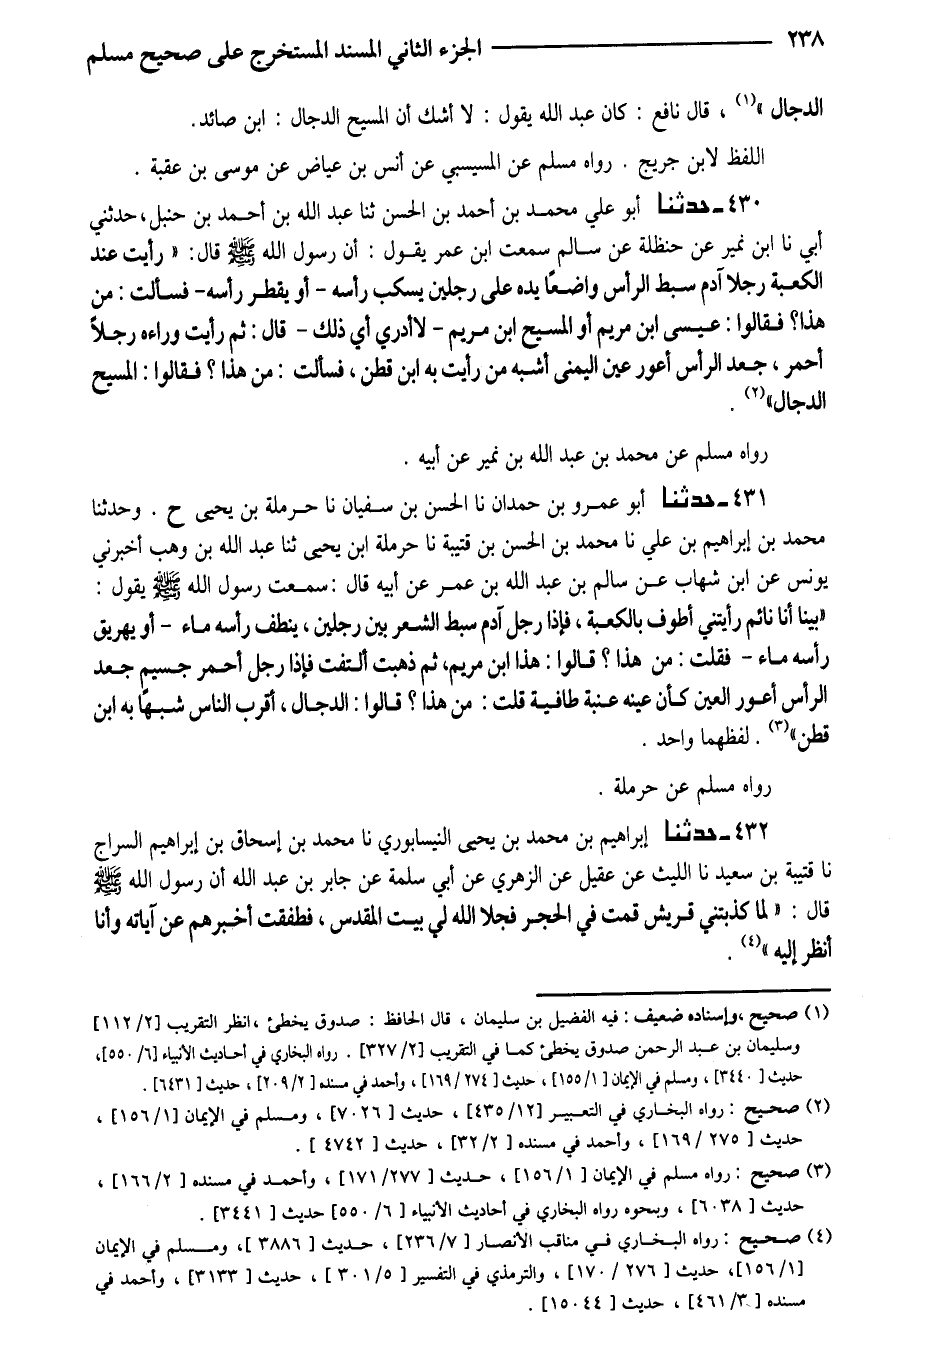 ٢٣٨ الجزء الثاني المسند المستخرج على صحيح مسلم
الدجال »(١) ، قال نافع : كان عبد الله يقول : لا أشك أن المسيح الدجال : ابن صائد.
اللفظ لابن جريج . رواه مسلم عن المسيبي عن أنس بن عياض عن موسى بن عقبة .
٤٣٠ ـ حدثنا أبو علي محمد بن أحمد بن الحسن ثنا عبد الله بن أحمد بن حنبل، حدثني
أبي نا ابن نمير عن حنظلة عن سالم سمعت ابن عمر يقول : أن رسول الله ﷺ قال: « رأيت عند
الكعبة رجلا آدم سبط الرأس واضعًا يده على رجلين يسكب رأسه - أو يقطر رأسه- فسألت : من
هذا؟ فقالوا : عيسى ابن مريم أو المسيح ابن مريم - لاأدري أي ذلك - قال : ثم رأيت وراءه رجلاً
أحمر ، جعد الرأس أعور عين اليمنى أشبه من رأيت به ابن قطن ، فسألت : من هذا ؟ فقالوا : المسيح
الدجال»(٢) .
رواه مسلم عن محمد بن عبد الله بن نمير عن أبيه .
٤٣١ ـ حدثنا أبو عمرو بن حمدان نا الحسن بن سفيان نا حرملة بن يحيى ح . وحدثنا
محمد بن إبراهيم بن علي نا محمد بن الحسن بن قتيبة نا حرملة ابن يحيى ثنا عبد الله بن وهب أخبرني
يونس عن ابن شهاب عن سالم بن عبد الله بن عمر عن أبيه قال : سمعت رسول الله ﷺ يقول :
«بينا أنا نائم رأيتني أطوف بالكعبة ، فإذا رجل آدم سبط الشعر بين رجلين ، ينطف رأسه ماء - أو يهريق
رأسه ماء - فقلت : من هذا ؟ قالوا : هذا ابن مريم، ثم ذهبت ألتفت فإذا رجل أحمر جسيم جعد
الرأس أعور العين كأن عينه عنبة طافية قلت : من هذا ؟ قالوا : الدجال ، أقرب الناس شبهًا به ابن
قطن»(٣) . لفظهما واحد .
رواه مسلم عن حرملة .
٤٣٢ ـ حدثنا إبراهيم بن محمد بن يحيى النيسابوري نا محمد بن إسحاق بن إبراهيم السراج
نا قتيبة بن سعيد نا الليث عن عقيل عن الزهري عن أبي سلمة عن جابر بن عبد الله أن رسول الله ﷺ
قال : « لما كذبتني قريش قمت في الحجر فجلا الله لي بيت المقدس ، فطفقت أخبرهم عن آياته وأنا
أنظر إليه »(٤) .
(١) صحيح ،وإسناده ضعيف : فيه الفضيل بن سليمان ، قال الحافظ : صدوق يخطئ ،انظر التقريب [٢/ ١١٢]
وسليمان بن عبد الرحمن صدوق يخطئ كما في التقريب [٢/ ٣٢٧] . رواه البخاري في أحاديث الأنبياء [٦/ ٥٥٠]،
حديث [ ٣٤٤٠] ، ومسلم في الإيمان [١/ ١٥٥] ، حديث [ ٢٧٤/ ١٦٩] ، وأحمد في مسنده [ ٢/ ٢٠٩] ، حديث [ ٦٤٣١] .
(٢) صحيح : رواه البخاري في التعبير [١٢/ ٤٣٥] ، حديث [ ٧٠٢٦] ، ومسلم في الإيمان [١/ ١٥٦] ،
حديث [ ٢٧٥ / ١٦٩] ، وأحمد في مسنده [ ٢/ ٣٢] ، حديث [ ٤٧٤٢ ] .
(٣) صحيح : رواه مسلم في الإيمان [ ١/ ١٥٦] ، حديث [ ٢٧٧/ ١٧١] ، وأحمد في مسنده [ ٢/ ١٦٦] ،
حديث [ ٦٠٣٨] ، وبنحوه رواه البخاري في أحاديث الأنبياء [ ٦/ ٥٥٠] حديث [ ٣٤٤١] .
(٤) صحيح : رواه البخاري في مناقب الأنصار [ ٧/ ٢٣٦] ، حديث [ ٣٨٨٦ ]، ومسلم في الإيمان
[١/ ١٥٦]، حديث [ ٢٧٦ / ١٧٠] ، والترمذي في التفسير [ ٥/ ٣٠١ ] ، حديث [ ٣١٣٣] ، وأحمد في
مسنده [ ٣/ ٤٦١] ، حديث [ ١٥٠٤٤] .